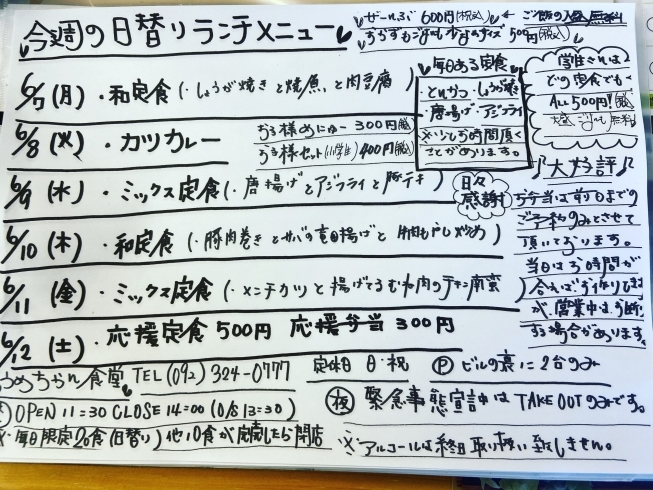 今週の日替りランチメニュー
ぜーんぶ 600円(税込) ← ご飯の大盛 無料
おかずもごはんも少なめサイズ 500円(税込)
6/7 (月)・和定食 (・しょうが焼きと焼魚と肉豆腐
6/8 (火)・カツカレー
お子様めにゅー 300円(税込)
お子様セット(小学生) 400円(税込)
6/9 (水)・ミックス定食 (・唐揚げとアジフライと豚テキ
6/10 (木)・和定食 (・豚肉巻きとサバの竜田揚げと
6/11 (金)・ミックス定食 (・メンチカツと揚げてるむね肉のチキン南蛮
6/12 (土)・応援定食 500円 応援弁当 300円
毎日ある定食
・とんかつ・しょうが焼き
・唐揚げ・アジフライ
※少しお時間頂く
ことがあります。
学生さんは
どの定食でも
ALL 500円!(税込)
大盛ごはん無料
日々
感謝
♪大好評♪
お弁当は前日までの
ご予約のみとさせて
頂いております。
当日はお時間が
合えばお作りします
が、営業中はお断り
する場合があります。
うめちゃん食堂 TEL (092) 324-0777
定休日 日・祝 Ⓟ ビルの裏に2台のみ
OPEN 11=30 CLOSE 14=00 (O/S 13=30)
㊡ 緊急事態宣言中は TAKE OUT のみです。
※毎日限定20食(日替り) 他10食が完売したら閉店
※アルコールは終日取り扱い致しません。